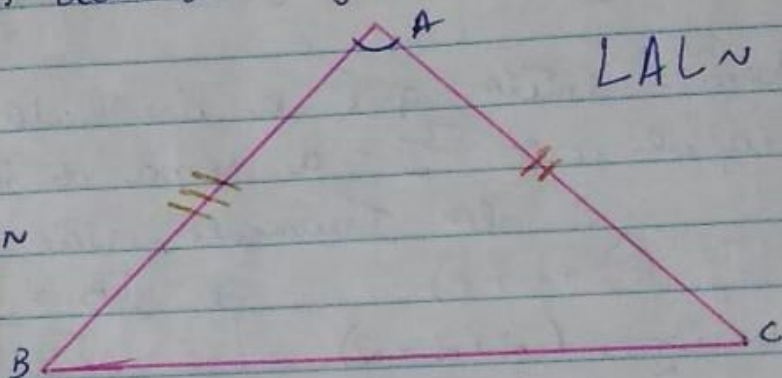 A
LAL ~
N
B
C